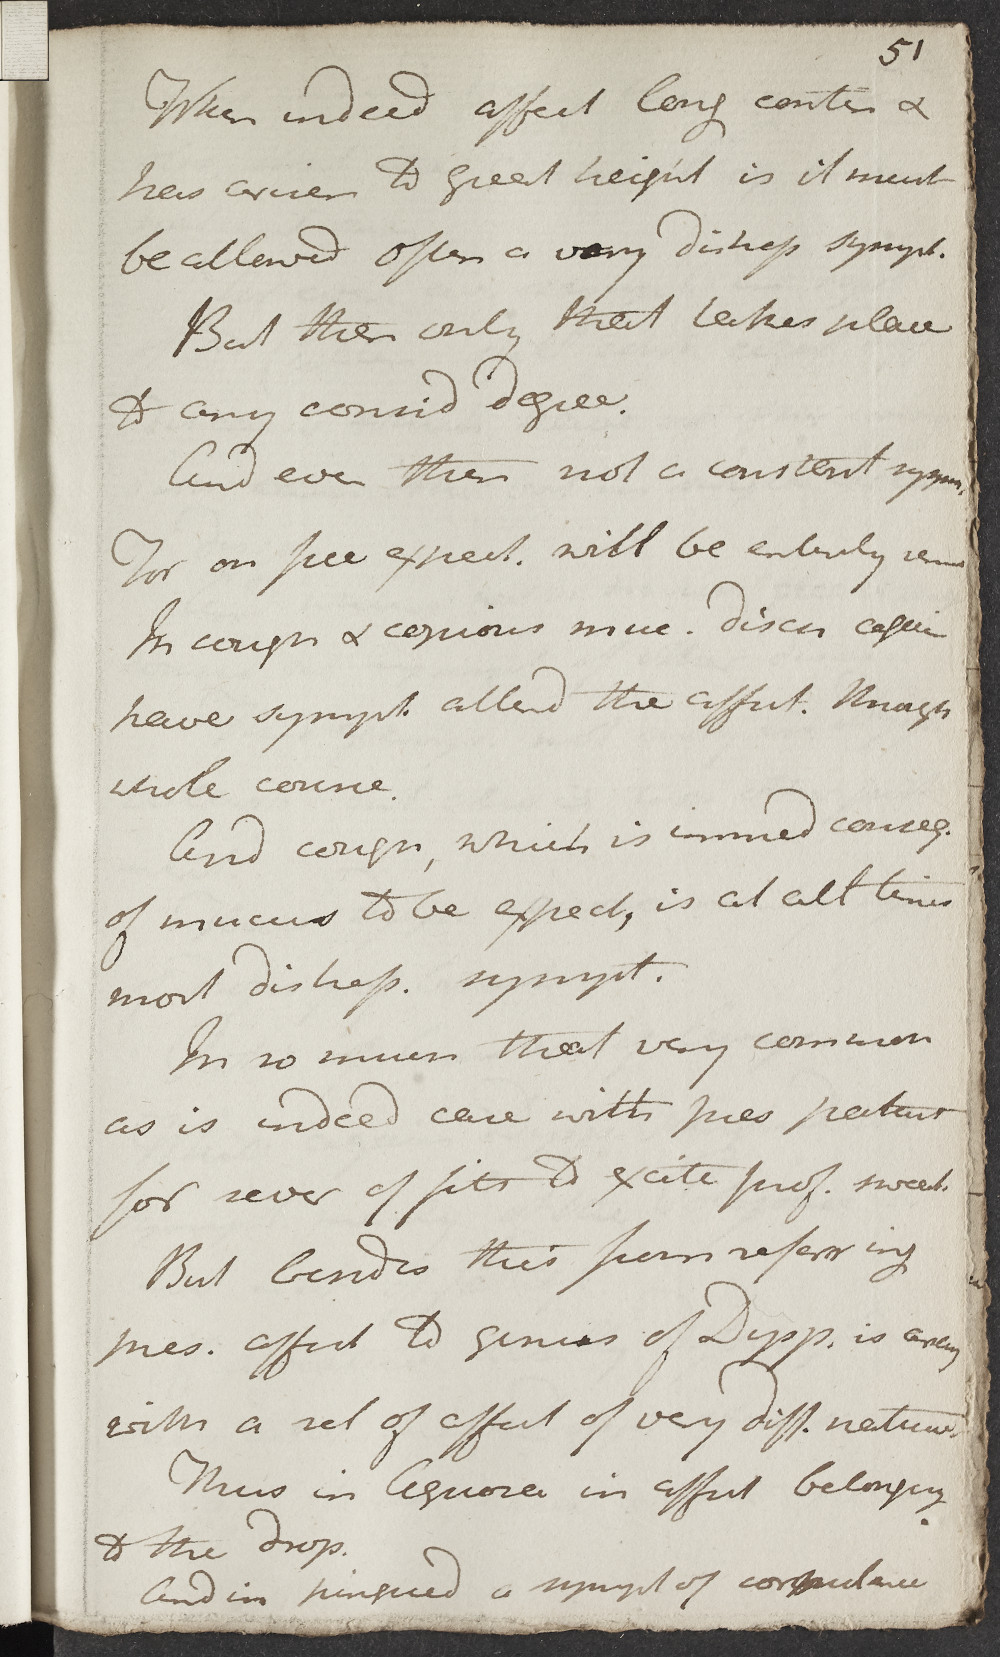 51
When indeed affect long contin &
has arisen to great height is it must
be allowed often a very distress sympt.
But then only that takes place
to any consid degree.
And even then not a constant sympt.
For on free expect. will be entirely
In cough & copious muc. disch again
have sympt. attend the affect. through
whole course.
And cough, which is immed conseq.
of mucus to be expect, is at all times
most distress. sympt.
In so much that very common
as is indeed case with pres patient
for sever of fits to excite prof. sweat.
But besides this from referring
pres. affect to genus of Dysp. is
with a set of affect of very diff. nature
Thus in Aquosa in affect belonging
to the drop.
And in pingued a sympt of corpulence